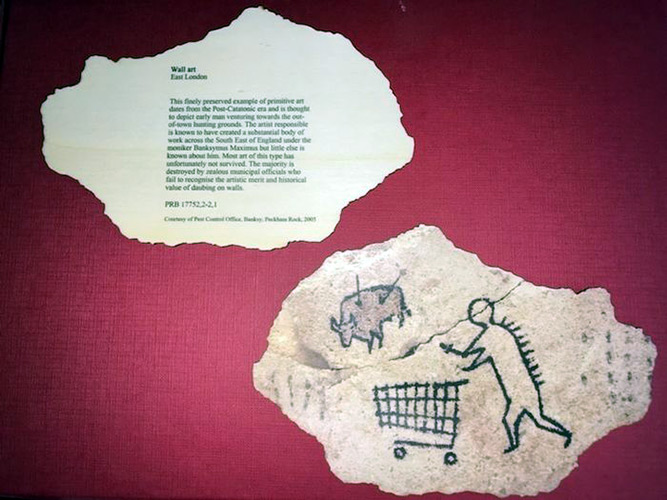 Wall art
East London
This finely preserved example of primitive art
dates from the Post-Catatonic era and is thought
to depict early man venturing towards the out-
of-town hunting grounds. The artist responsible
is known to have created a substantial body of
work across the South East of England under the
moniker Banksymus Maximus but little else is
known about him. Most art of this type has
unfortunately not survived. The majority is
destroyed by zealous municipal officials who
fail to recognise the artistic merit and historical
value of daubing on walls.
PRB 17752,2-2,1
Courtesy of Pest Control Office, Banksy, Peckham Rock, 2005